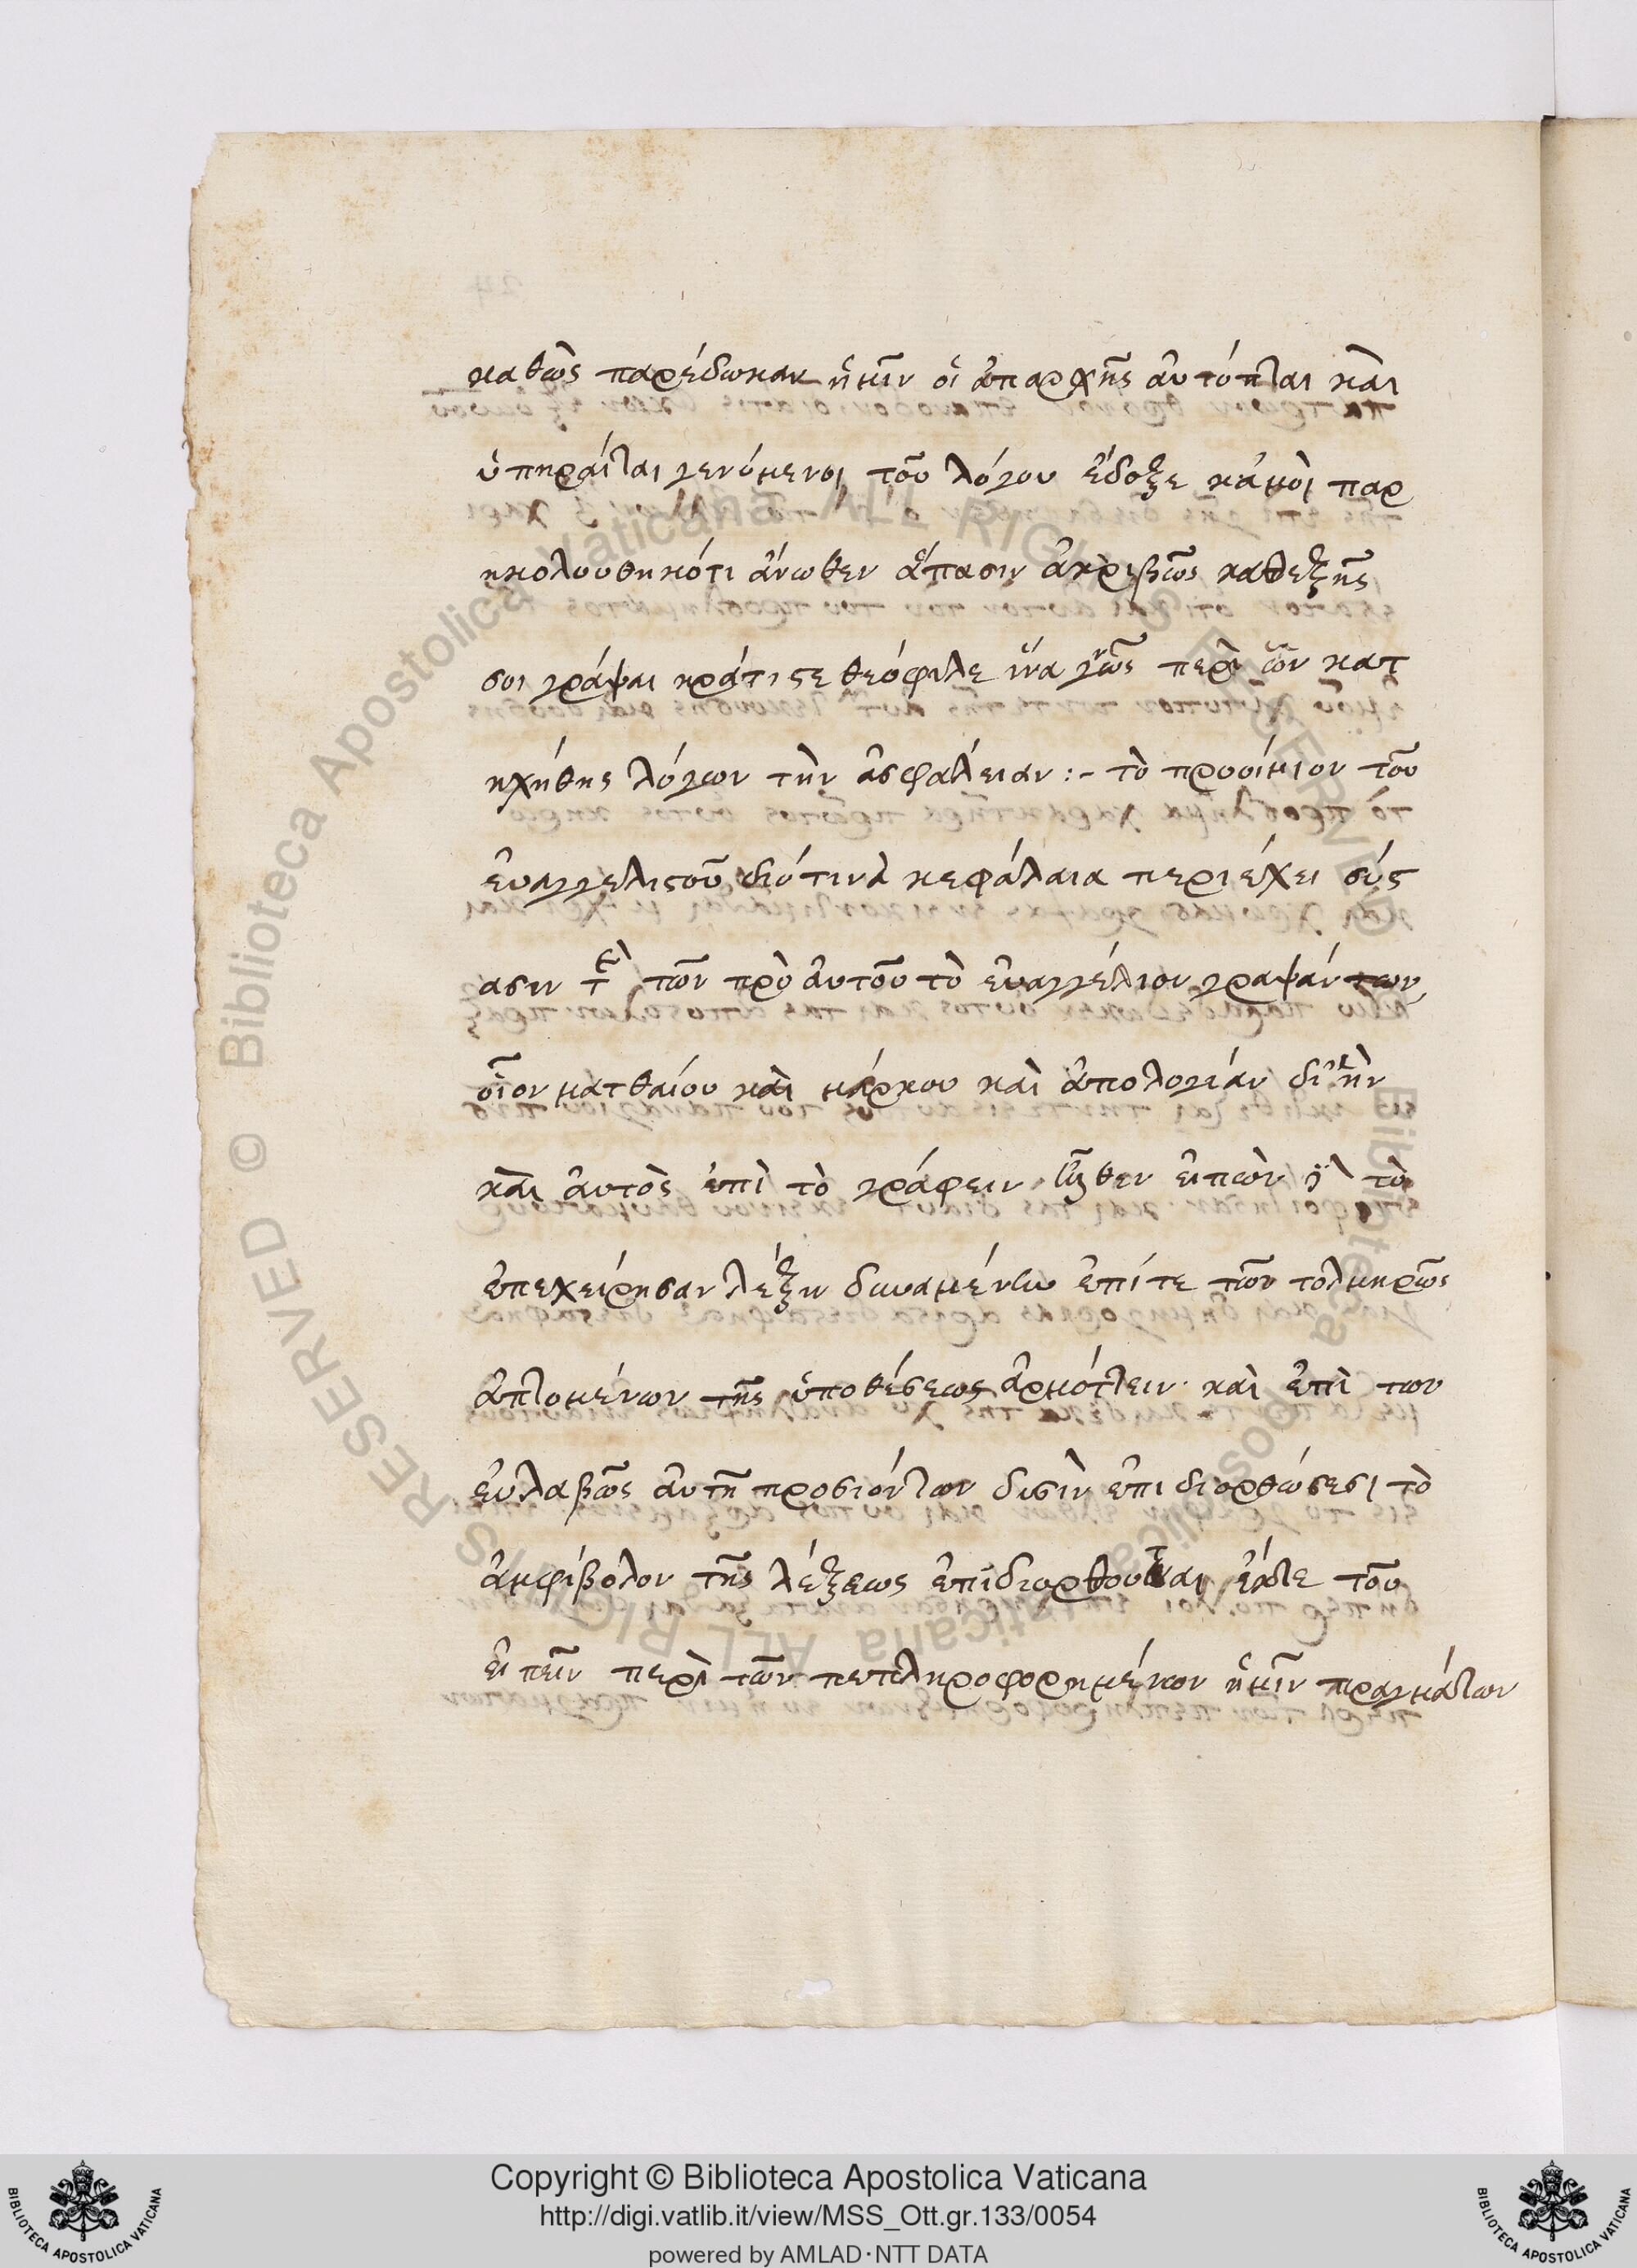 καθὼς παρέδωκαν ἡμῖν οἱ ἀπαρχῆς αὐτόπται καὶ
ὑπηρέται γενόμενοι τοῦ λόγου ἔδοξε κἀμοὶ παρ
ηκολουθηκότι ἄνωθεν ἅπασιν ἀκριβῶς καθεξῆς
σοι γράψαι κράτιστε θεόφιλε ἵνα γνῷς περὶ ὧν κατ
ηχήθης λόγων τὴν ἀσφάλειαν :- τὸ προοίμιον τοῦ
εὐαγγελιστοῦ κεφάλαια περιέχει σύστ
ασιν τῶν πρὸ αὐτοῦ τὸ εὐαγγέλιον γραψάντων
οἷον ματθαίου καὶ μάρκου καὶ ἀπολογίαν δι' ἣν
καὶ αὐτὸς ἐπὶ τὸ γράφειν εἰπὼν τὸ
ἐπεχείρησαν λέξιν δυναμένην ἐπίτε τῶν τολμηρῶς
ἁπτομένων τῆς ὑποθέσεως ἁρμόττειν· καὶ ἐπὶ των
εὐλαβῶς αὐτῇ προσιόντων δυσὶν ἐπιδιορθώσεσι τὸ
ἀμφίβολον τῆς λέξεως ἐπιδιορθοῦται ἔκτε τοῦ
εἰπεῖν περὶ τῶν πεπληροφορημένων ἡμῖν πραγμάτων
Copyright © Biblioteca Apostolica Vaticana
http://digi.vatlib.it/view/MSS_Ott.gr.133/0054
powered by AMLAD·NTT DATA
BIBLIOTECA APOSTOLICA VATICANA
BIBLIOTECA APOSTOLICA VATICANA
© Biblioteca Apostolica Vaticana ALL RIGHTS RESERVED